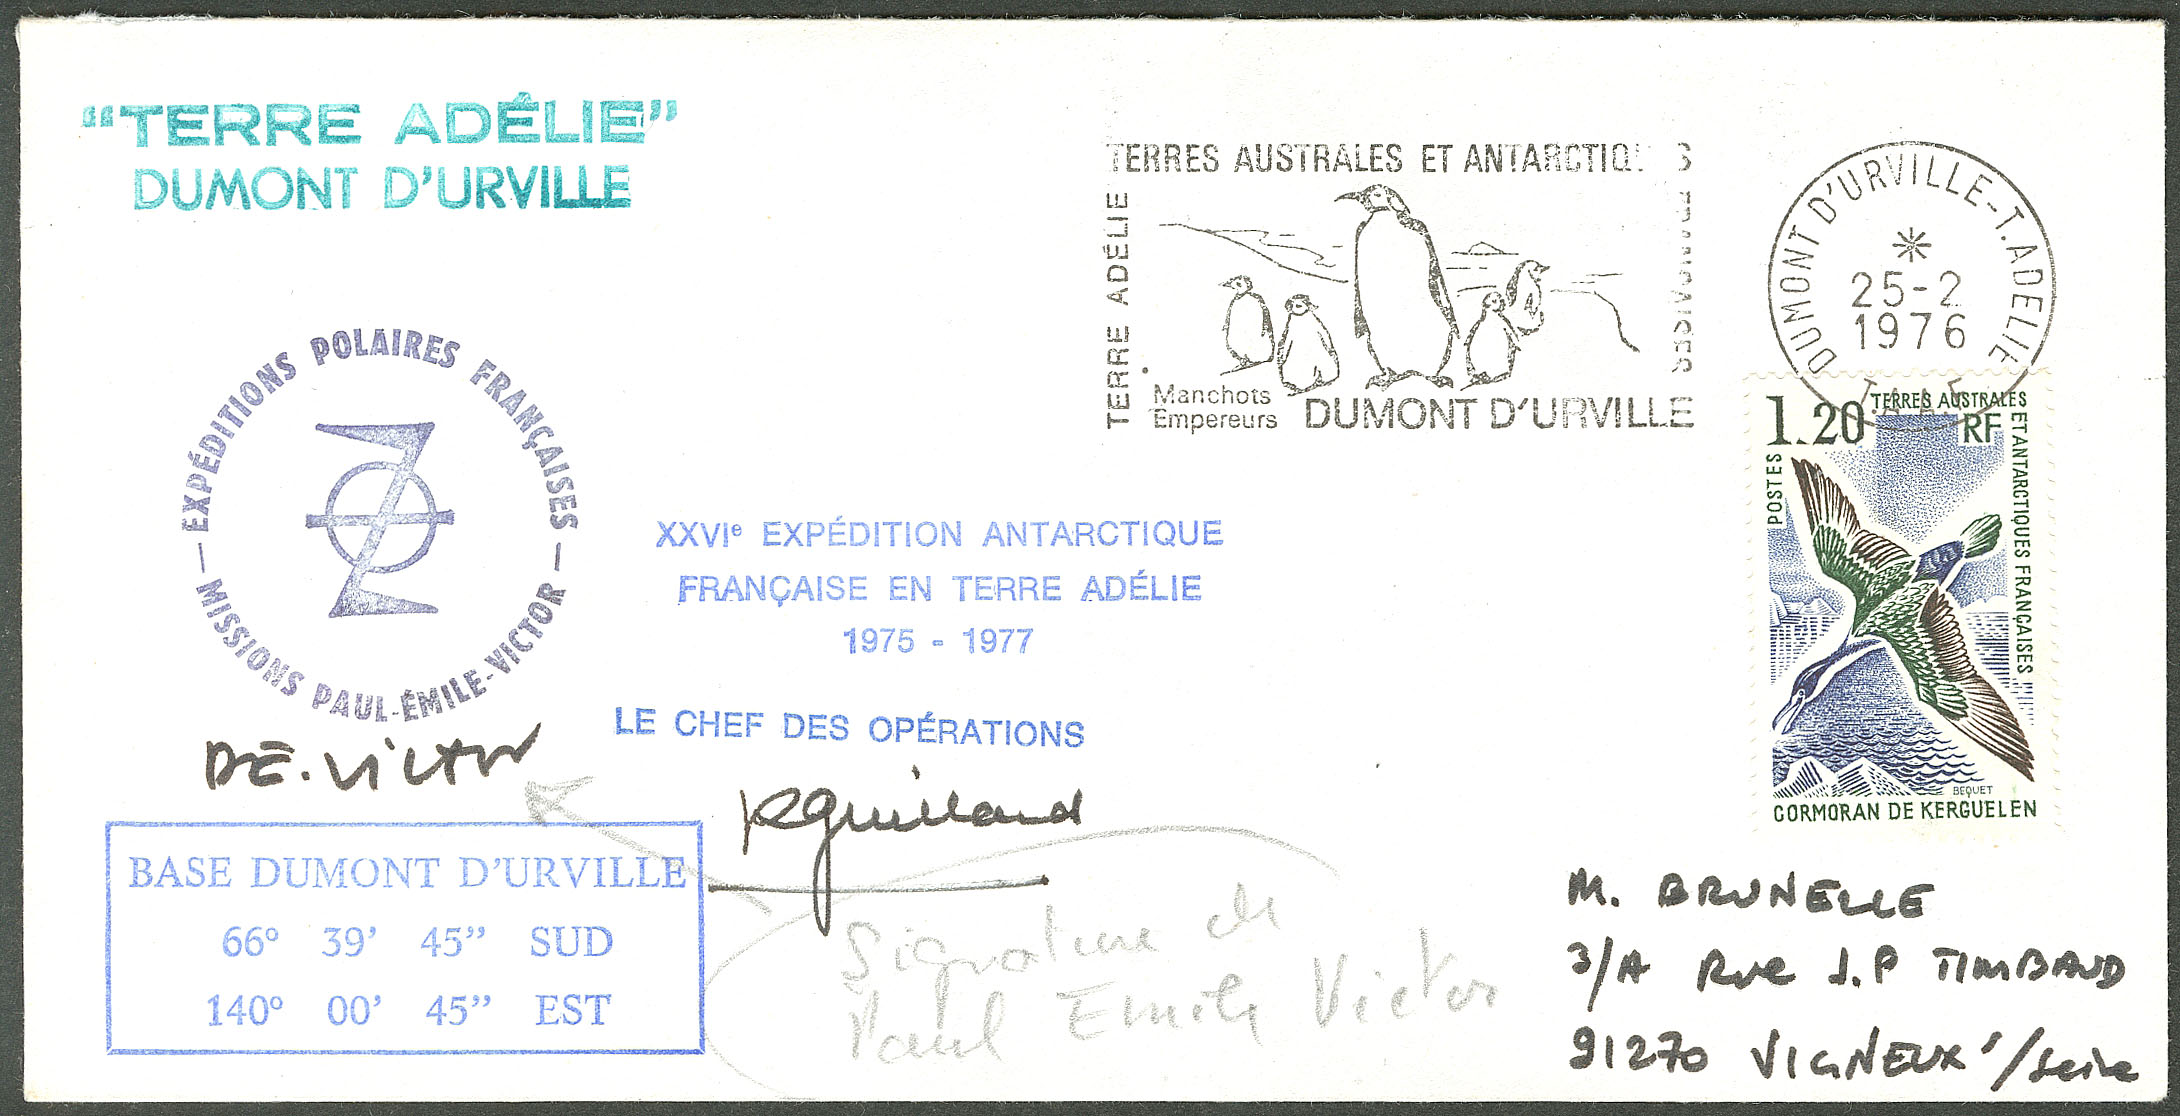 “TERRE ADÉLIE”
DUMONT D'URVILLE
TERRES AUSTRALES ET ANTARCTIQ S
TERRE ADÉLIE
FRANÇAISES
Manchots
Empereurs
DUMONT D'URVILLE
DUMONT D'URVILLE-T.ADELIE
25-2
1976
T.A.A.F.
1.20
TERRES AUSTRALES
ET ANTARCTIQUES FRANÇAISES
RF
POSTES
BEQUET
CORMORAN DE KERGUELEN
— EXPÉDITIONS POLAIRES FRANÇAISES —
MISSIONS PAUL-ÉMILE-VICTOR
XXVIe EXPÉDITION ANTARCTIQUE
FRANÇAISE EN TERRE ADÉLIE
1975 - 1977
LE CHEF DES OPÉRATIONS
PE. Victor
RGuillard
BASE DUMONT D'URVILLE
66° 39' 45” SUD
140° 00' 45” EST
Signature de
Paul Emile Victor
M. BRUNELLE
3/A Rue J.P TIMBAUD
91270 VIGNEUX S/Seine